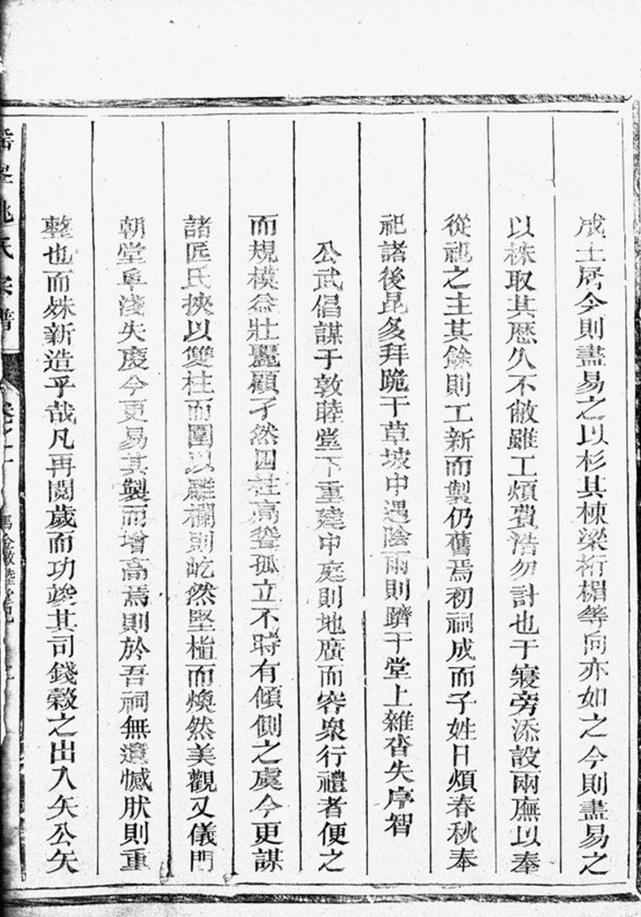 成土屑今則盡易之以杉其棟梁桁楣等向亦如之今則盡易之
以株取其歷久不敝雖工煩費浩勿計也于寢旁添設兩廡以奉
從祀之主其餘則工新而製仍舊焉初祠成而子姓日煩春秋奉
祀諸後昆多拜跪于草坡中遇陰雨則躋于堂上雜沓失序智
公武倡謀于敦睦堂下重建中庭則地廣而容衆行禮者便之
而規模益壯麗顧孑然四柱高聳孤立不時有傾側之虞今更謀
諸匠氏挾以雙柱而圍以雕欄則屹然堅楂而煥然美觀又儀門
朝堂卑淺失度今更易其製而增高焉則於吾祠無遺憾肰則重
整也而姝新造乎哉凡再閱歲而功竣其司錢榖之出入矢公矢
姚氏宗譜